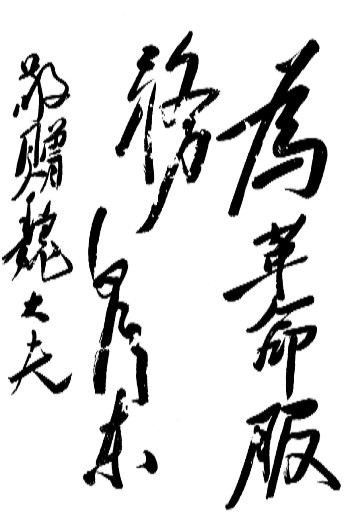 為革命服
務 毛泽东
敬贈魏大夫